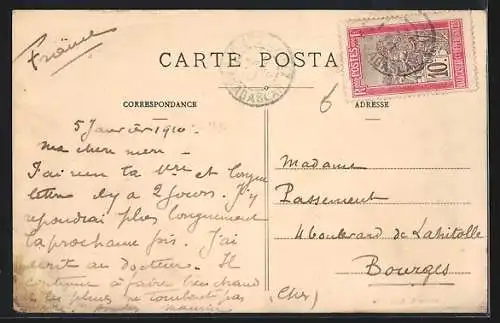 France
CARTE POSTA
CORRESPONDANCE
ADRESSE
POSTES
10
6
5 Janvier 1910
ma chere mere -
J'ai reçu ta et longue
lettre il y a 2 jours. J'y
repondrai plus longuement
la prochaine fois. J'ai
écrit au docteur. Il
continue à faire très chaud
pas
Maurice
Madame
Passement
4 boulevard de Lahitolle
Bourges
(Cher)